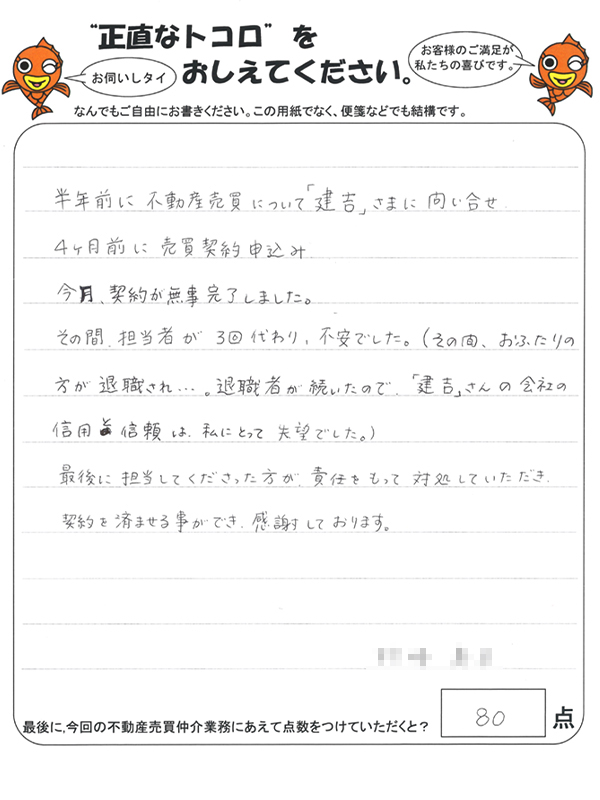 “正直なトコロ”を
お伺いしタイ
おしえてください。
お客様のご満足が
私たちの喜びです。
なんでもご自由にお書きください。この用紙でなく、便箋などでも結構です。
半年前に 不動産売買について「建吉」さまに 問い合せ
4ヶ月前に 売買契約申込み
今月、契約が無事完了しました。
その間、担当者が 3回代わり、不安でした。(その間、おふたりの
方が退職され…。退職者が続いたので、「建吉」さんの会社の
信用と信頼は、私にとって 失望でした。)
最後に担当してくださった方が、責任をもって 対処していただき、
契約を済ませる事ができ、感謝しております。
最後に、今回の不動産売買仲介業務にあえて点数をつけていただくと?
80 点